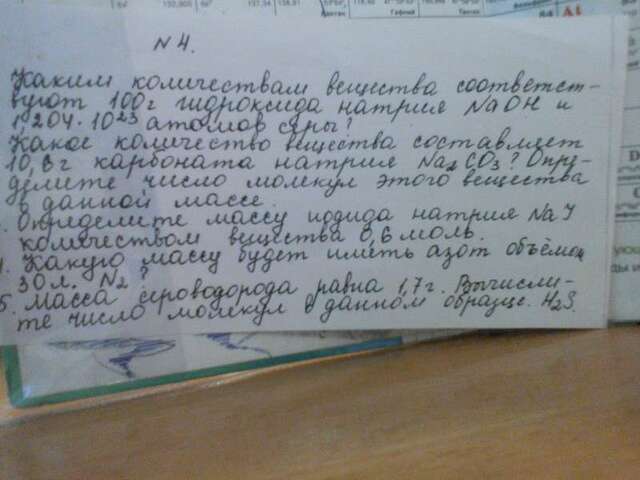 N 4.
Каким количествам вещества соответст-
вуют 100г гидроксида натрия NaOH и
1,204·10²³ атомов серы?
Какое количество вещества составляет
10,6г карбоната натрия Na₂CO₃? Опре-
делите число молекул этого вещества
в данной массе.
Определите массу иодида натрия NaI
количеством вещества 0,6 моль.
Какую массу будет иметь азот объёмом
30 л. N₂?
5. Масса сероводорода равна 1,7г. Вычисли-
те число молекул в данном образце. H₂S.